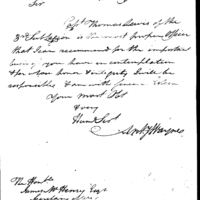 Sir
Capt Thomas Lewis of the
3rd Sub Legion is the most proper Officer
that I can recommend for the important
you have in contemplation
for whose honor & integrity I will be
responsible I am with
Your most Obt
& very
Hum Sert
Anty Wayne
The Honble
James McHenry Esqr
Secretary of War